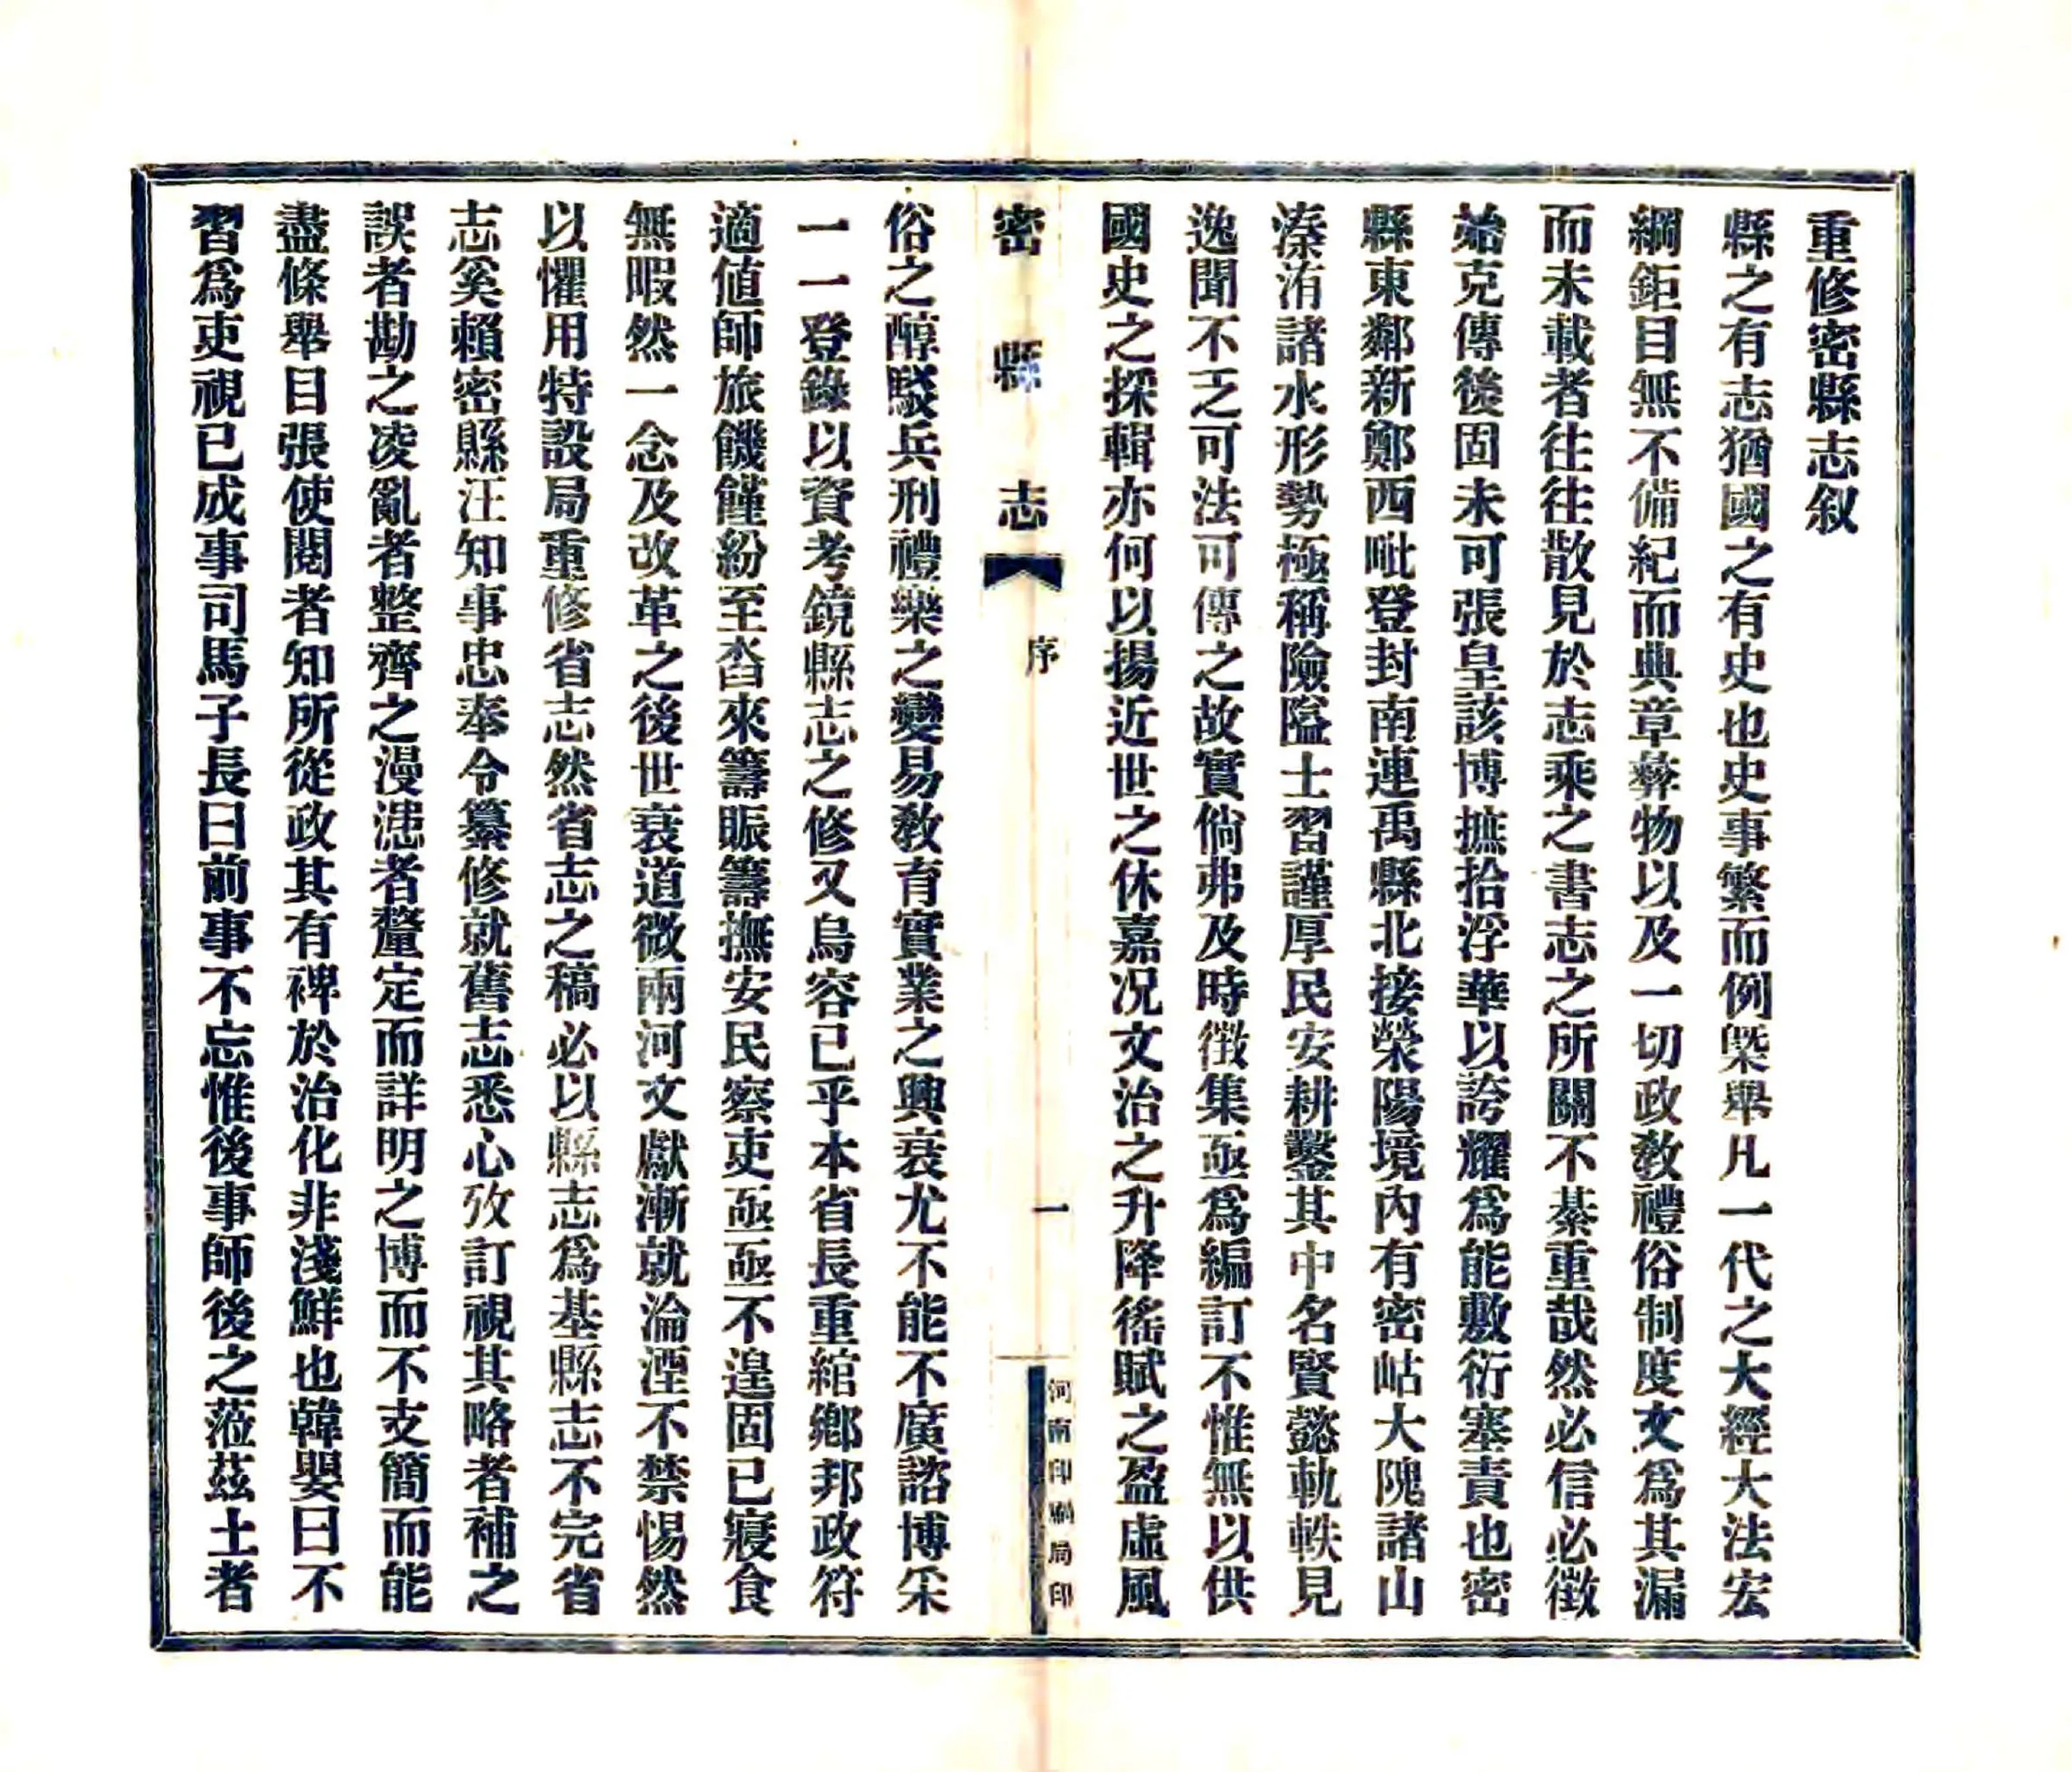 重修密縣志叙
縣之有志猶國之有史也史事繁而例槩舉凡一代之大經大法宏
綱鉅目無不備紀而典章彝物以及一切政教禮俗制度文爲其漏
而未載者往往散見於志乘之書志之所關不綦重哉然必信必徵
始克傳後固未可張皇該博摭拾浮華以誇耀爲能敷衍塞責也密
縣東鄰新鄭西毗登封南連禹縣北接滎陽境內有密岵大隗諸山
溱洧諸水形勢極稱險隘士習謹厚民安耕鑿其中名賢懿軌軼見
逸聞不乏可法可傳之故實倘弗及時徵集亟爲編訂不惟無以供
國史之採輯亦何以揚近世之休嘉况文治之升降徭賦之盈虛風
密縣志
序
一
河南印刷局印
俗之醇駁兵刑禮樂之變易教育實業之興衰尤不能不廣諮博采
一一登錄以資考鏡縣志之修又烏容已乎本省長重綰鄉邦政符
適値師旅饑饉紛至沓來籌賑籌撫安民察吏亟亟不遑固已寢食
無暇然一念及改革之後世衰道微兩河文獻漸就淪湮不禁惕然
以懼用特設局重修省志然省志之稿必以縣志爲基縣志不完省
志奚賴密縣汪知事忠奉令纂修就舊志悉心攷訂視其略者補之
誤者勘之凌亂者整齊之漫漶者釐定而詳明之博而不支簡而能
盡條舉目張使閱者知所從政其有裨於治化非淺鮮也韓嬰曰不
習爲吏視已成事司馬子長曰前事不忘惟後事師後之蒞茲土者